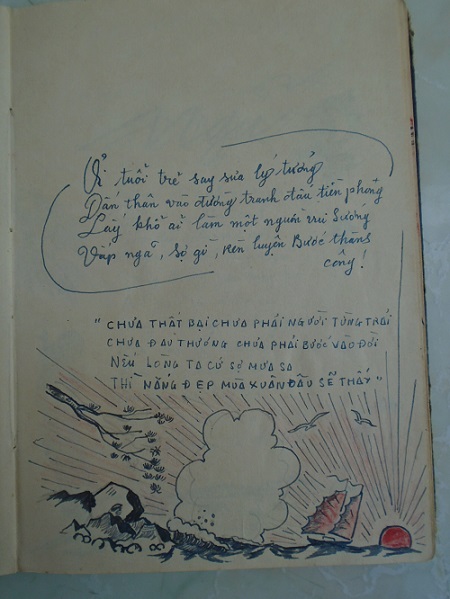 Ơi tuổi trẻ say sưa lý tưởng
Dấn thân vào đường tranh đấu tiền phong
Lấy khổ ải làm một nguồn vui sướng
Vấp ngã, sợ gì, rèn luyện Bước thành
công!
"CHƯA THẤT BẠI CHƯA PHẢI NGƯỜI TỪNG TRẢI
CHƯA ĐAU THƯƠNG CHƯA PHẢI BƯỚC VÀO ĐỜI
NẾU LÒNG TA CỨ SỢ MƯA SA
THÌ NẮNG ĐẸP MÙA XUÂN ĐÂU SẼ THẤY"